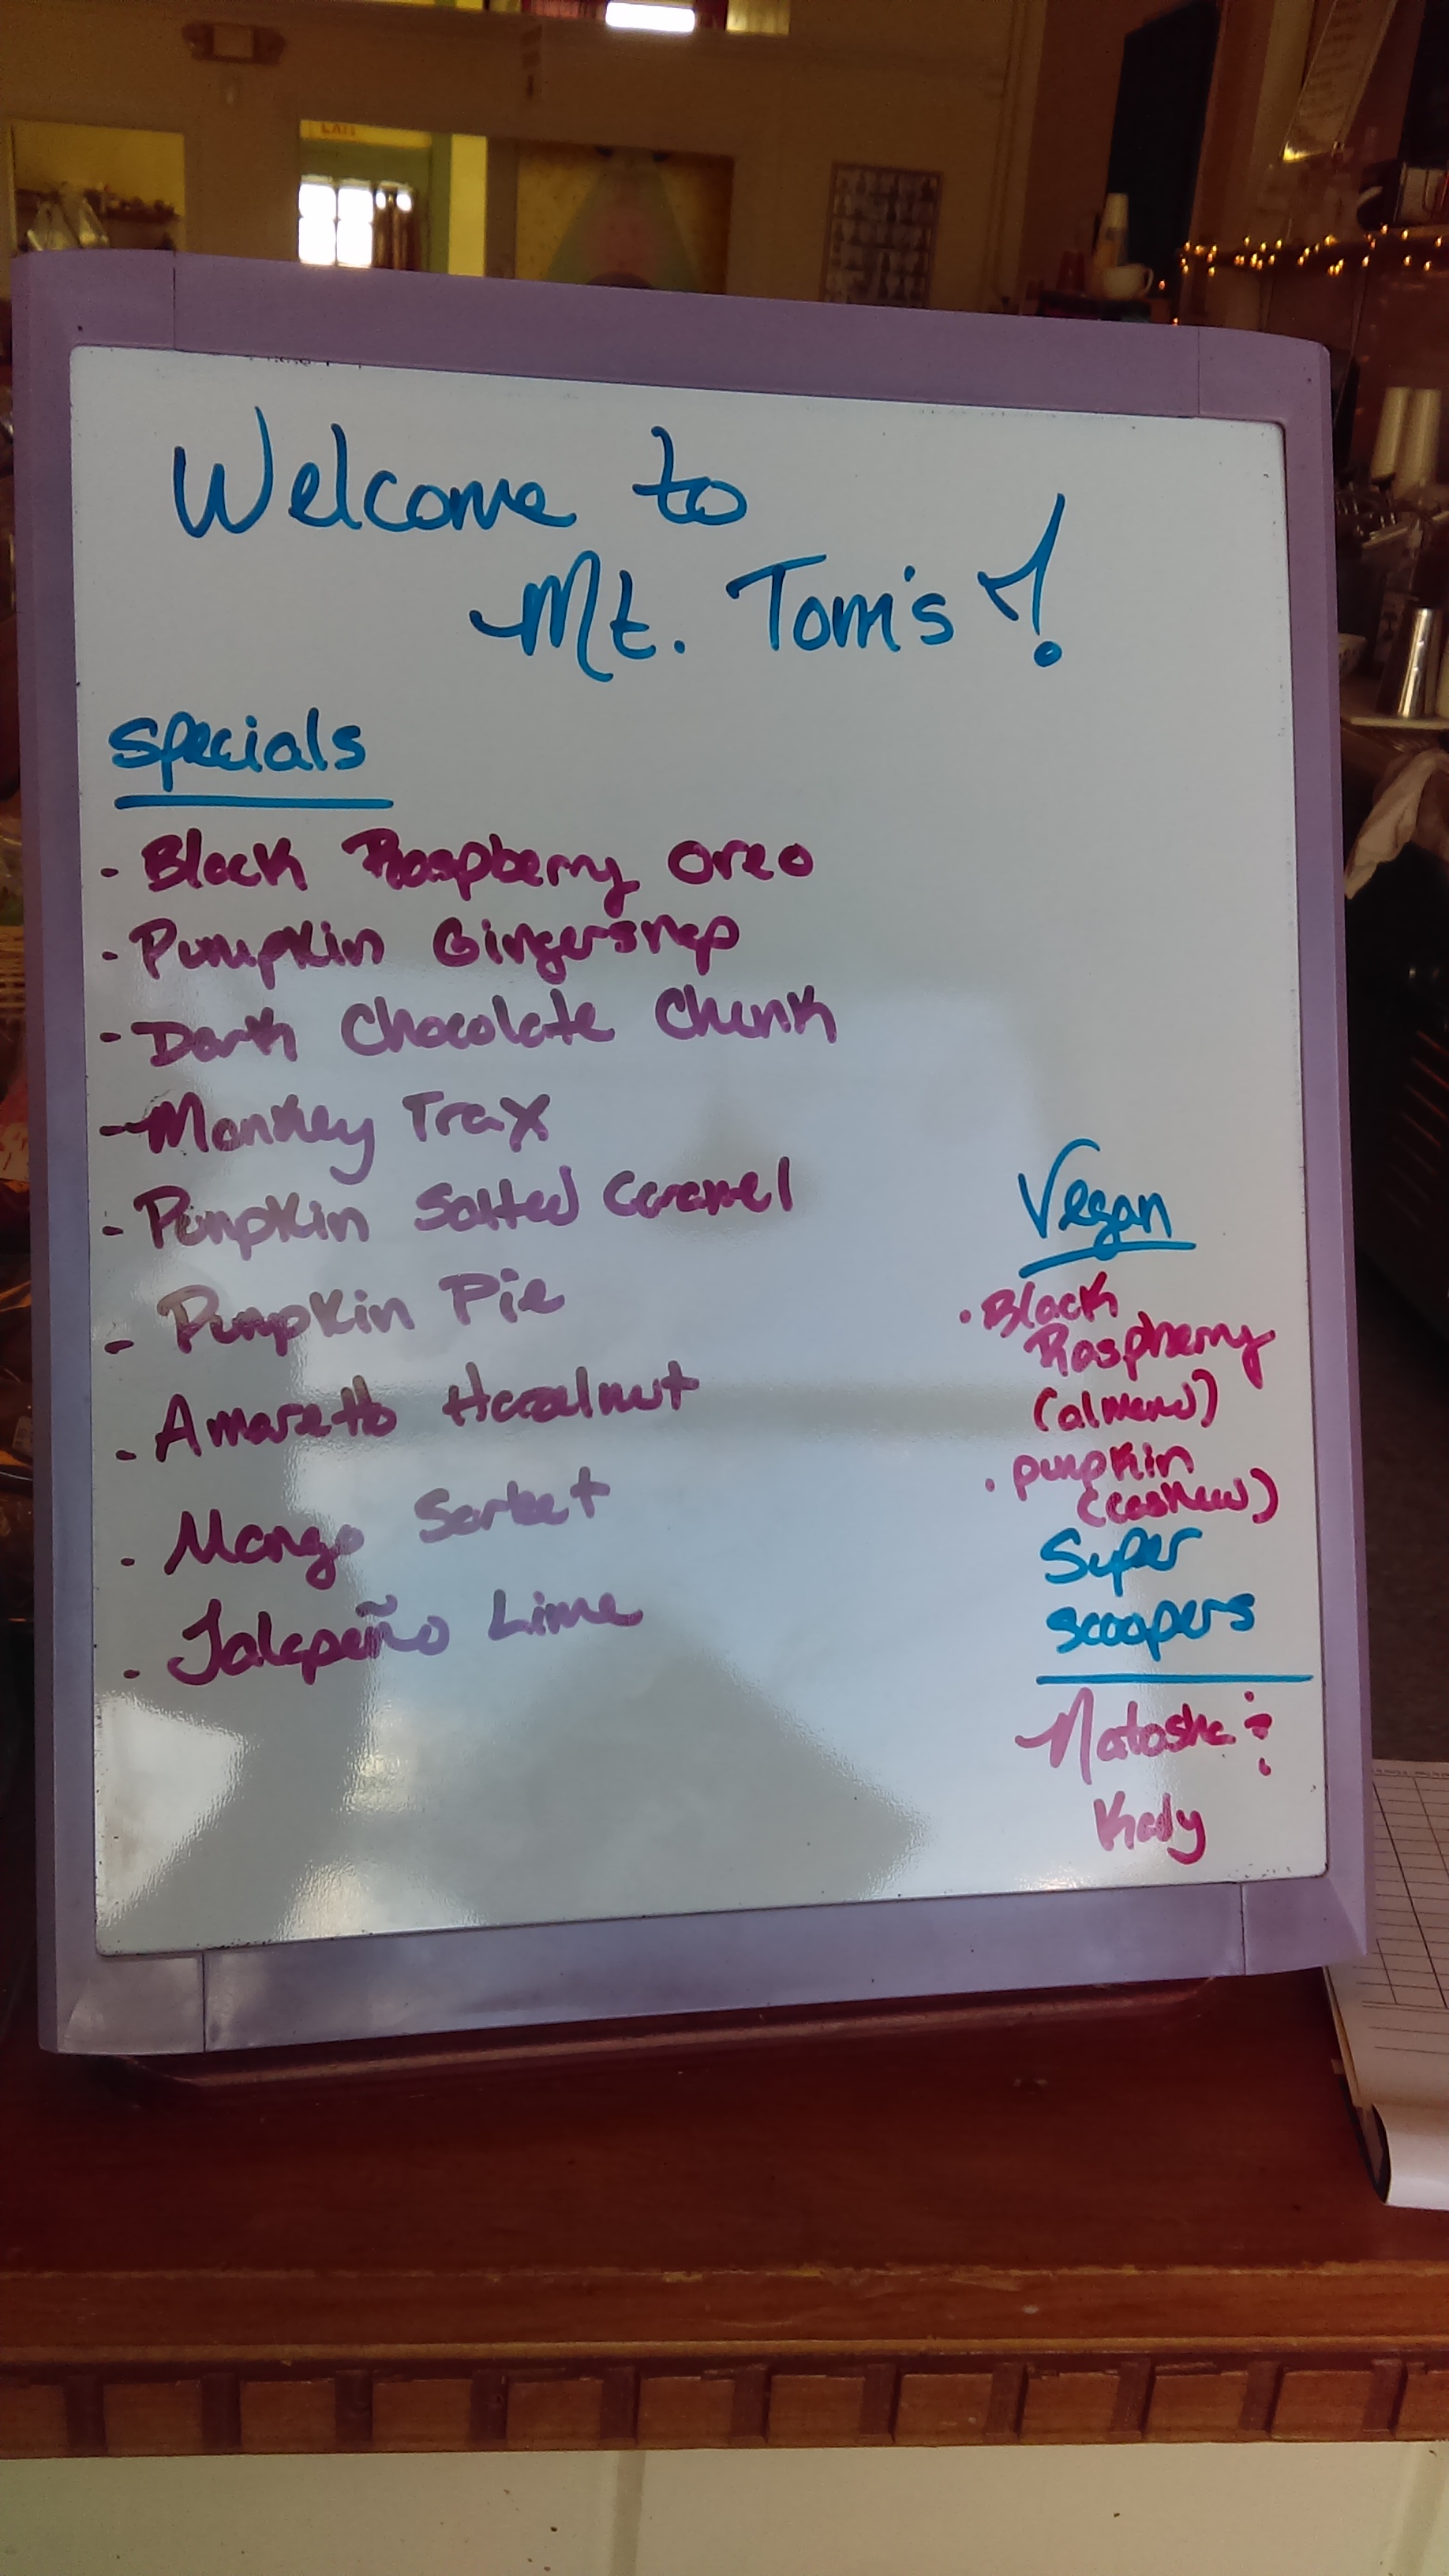 Welcome to
Mt. Tom's!
Specials
- Black Raspberry Oreo
- Pumpkin Gingersnap
- Dark Chocolate Chunk
- Monkey Trax
- Pumpkin Salted Caramel
- Pumpkin Pie
- Amaretto Hazelnut
- Mango Sorbet
- Jalapeño Lime
Vegan
· Black
Raspberry
(almond)
· pumpkin
(cashew)
Super
Scoopers
Natasha &
Kady
EXIT